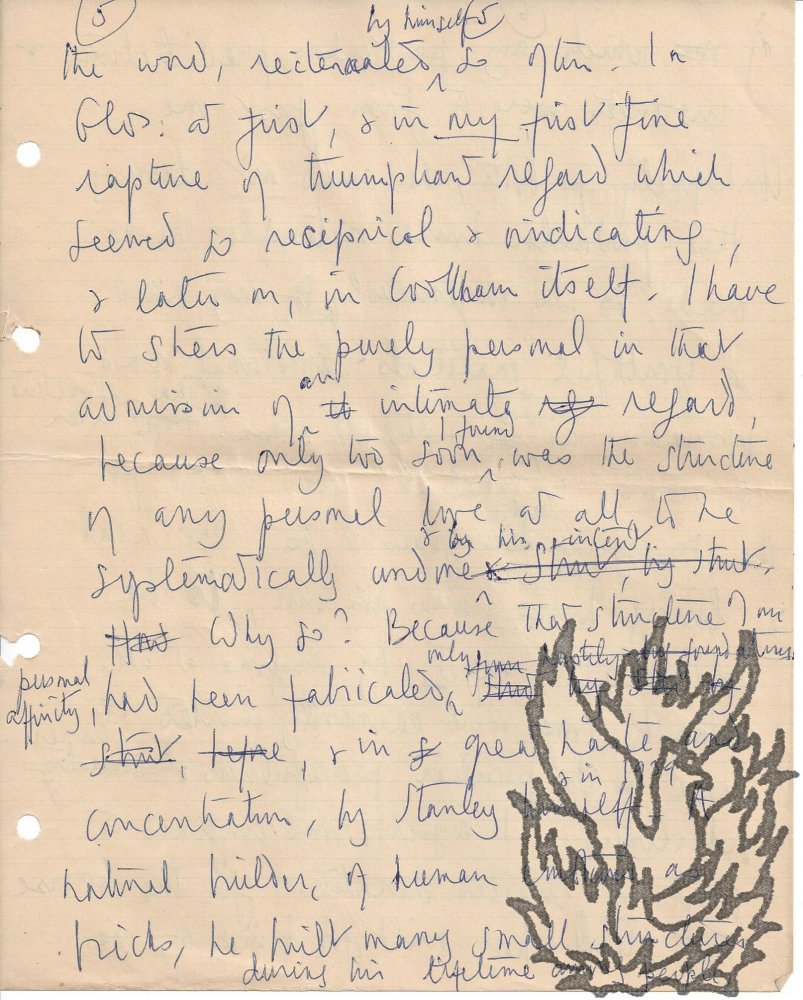 5
by himself 5
the word, reiterated so often. In
Glos: at first, & in my first fine
rapture of triumphant regard which
seemed so reciprical & vindicating,
& later on, in Cookham itself. I have
to stress the purely personal in that
an
admission of intimate regard,
I found
because only too soon, was the structure
of any personal love at all, to be
& by his intent
systematically undone strut, by strut.
Why so? Because that structure of our
only hastily
personal
affinity, had been fabricated,
strut, & in great haste and
& in 1929
concentration, by Stanley himself. A
natural builder, of human emotions as
bricks, he built many small structures
during his lifetime among people